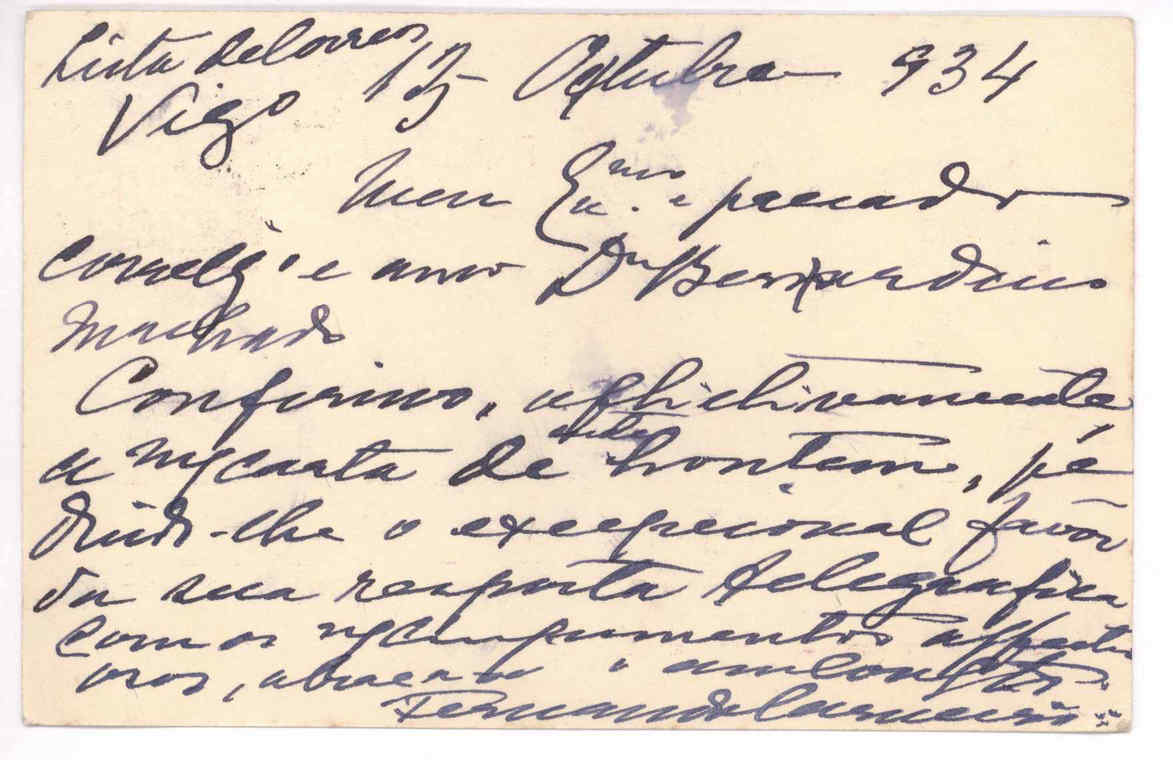 Lista de Correos
Vigo 13 Octubre 934
Meu Exmo. e prezado
correlig.o e amo Dr Bernardino
Machado
Confirmo, afflictivamente
a mca carta de ante hontem, pe
dindo-lhe o excepcional favôr
da sua resposta telegrafica
com os cumprimentos affectu
osos, abraça-o o am
Fernando Carneiro